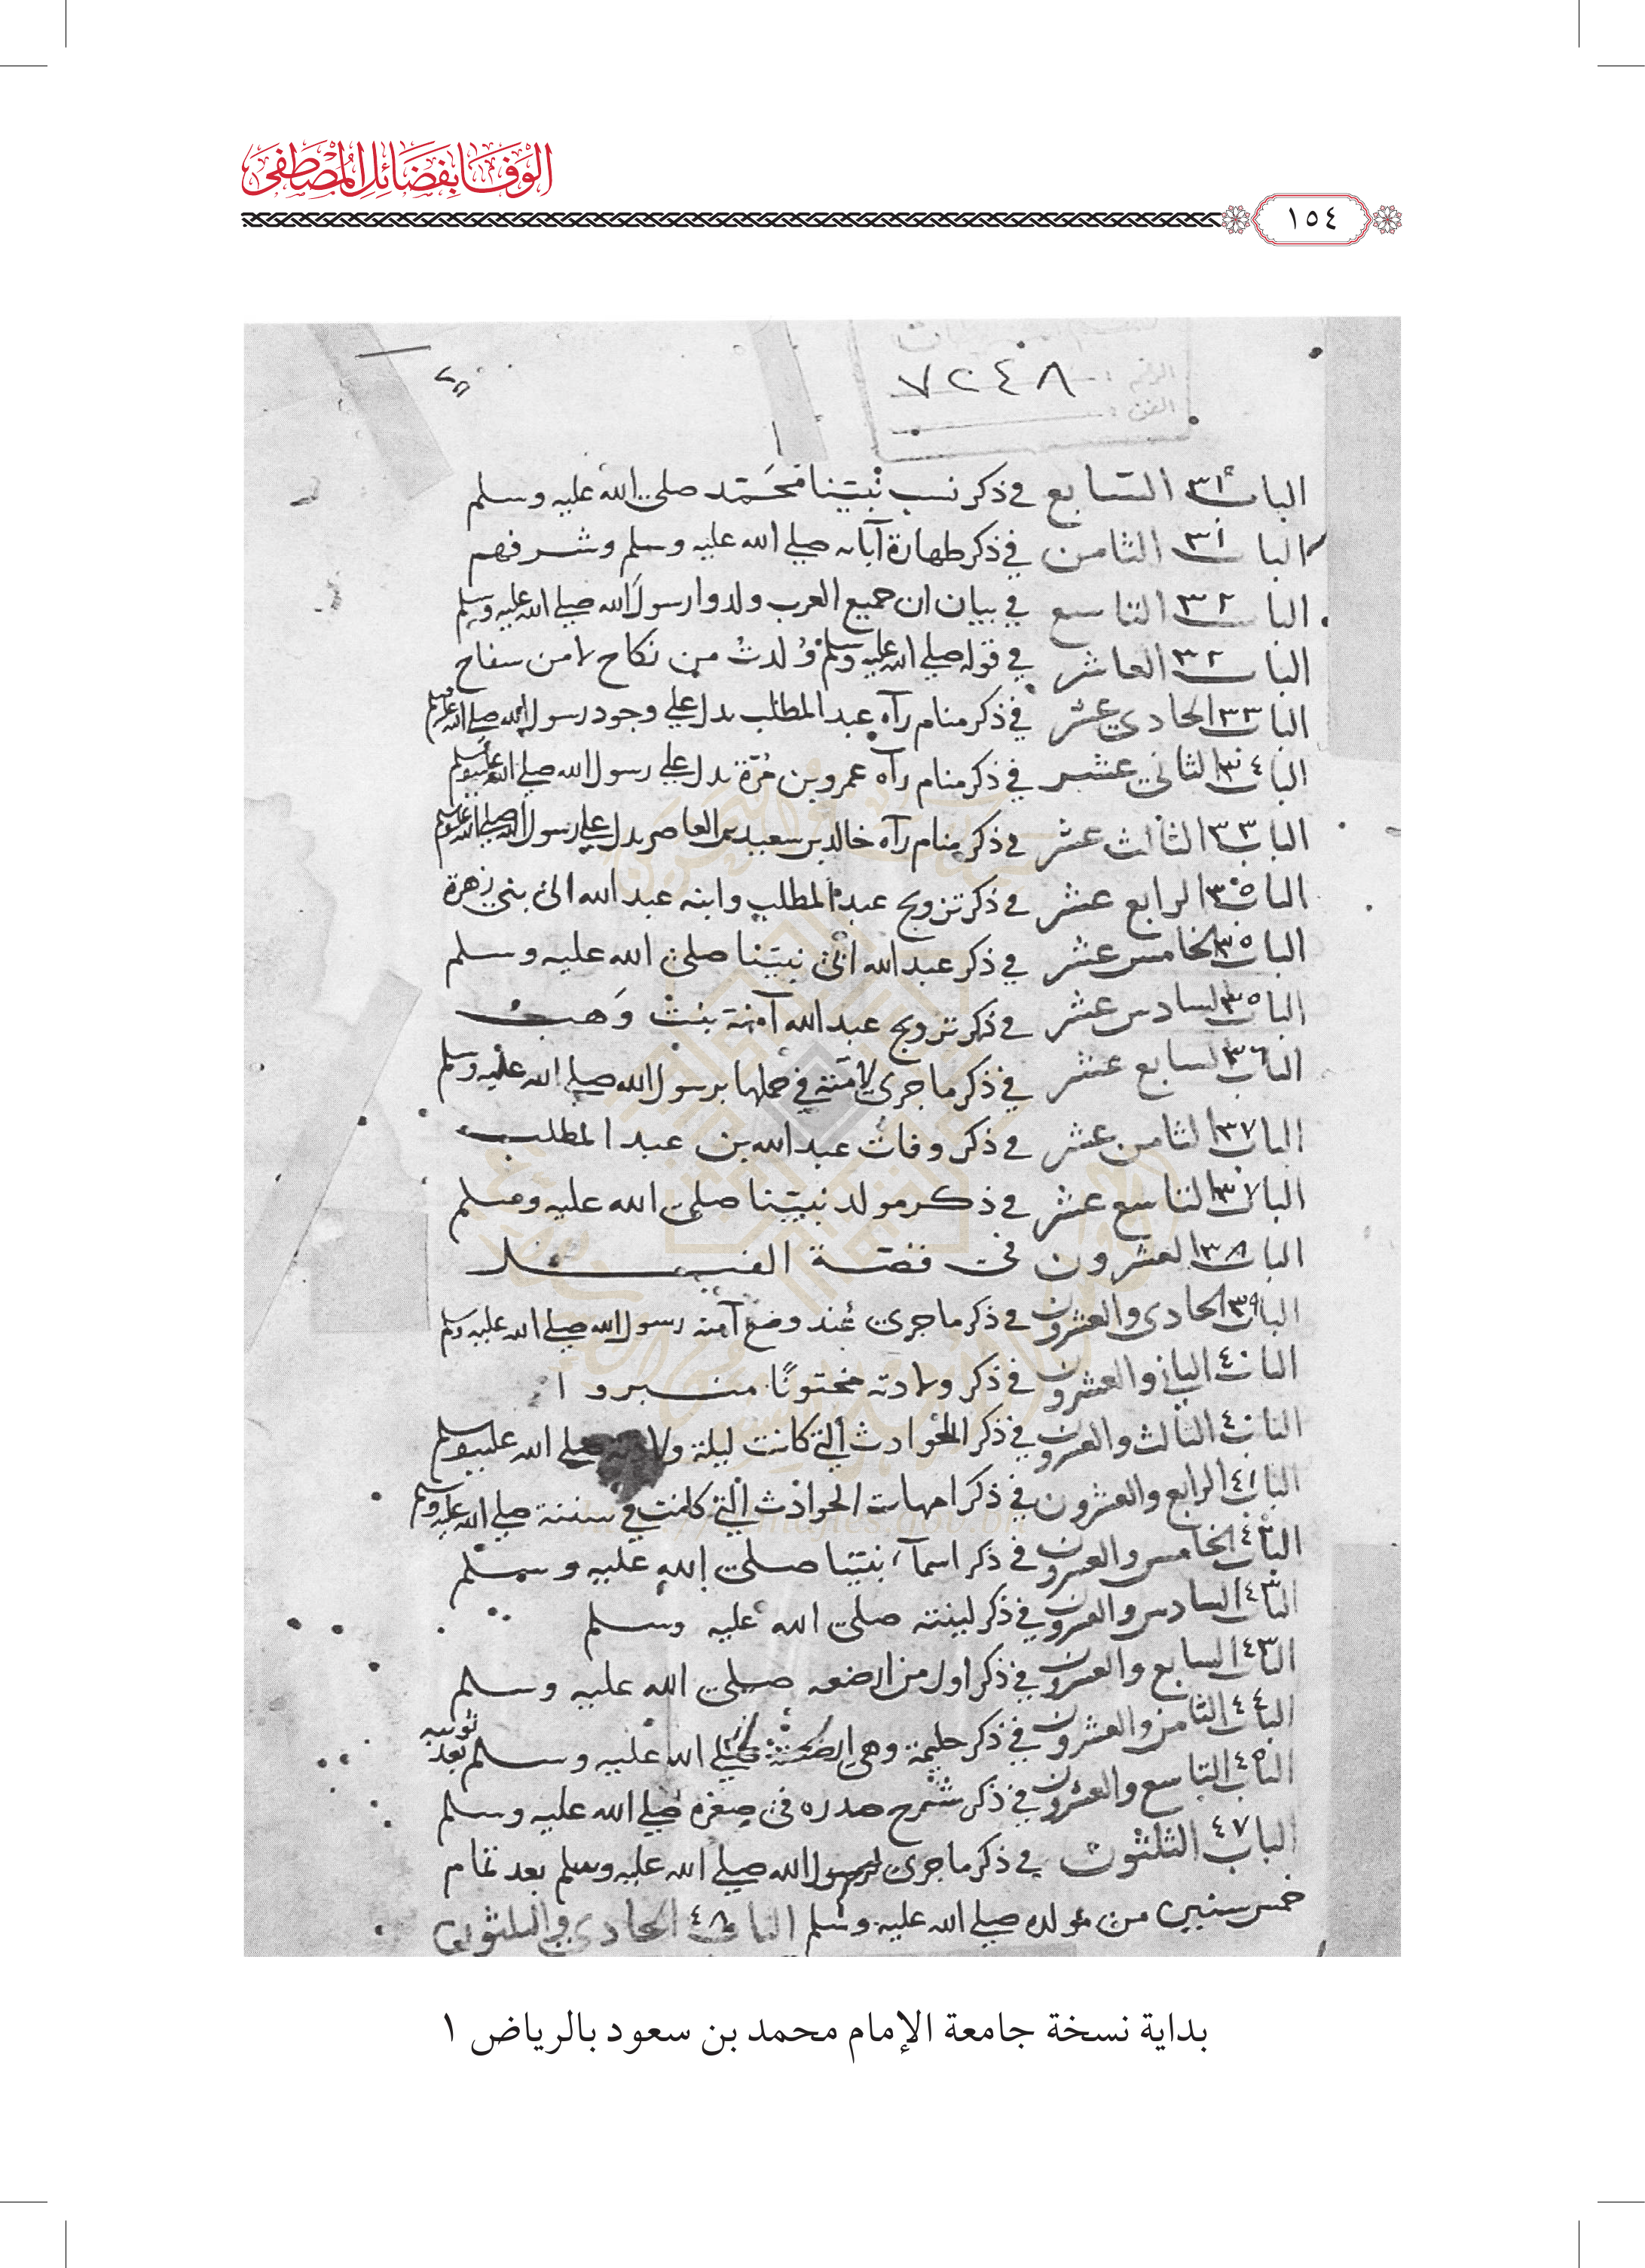 الوَفَا بِفَضَائِلِ المُصْطَفَى
١٥٤
الرقم :
٧٢٤٨
الفن :
الباب ٣١ السابع في ذكر نسب نبينا محمد صلى الله عليه وسلم
الباب ٣١ الثامن في ذكر طهارة آبائه صلى الله عليه وسلم وشرفهم
الباب ٣٢ التاسع في بيان ان جميع العرب ولدوا رسول الله صلى الله عليه وسلم
الباب ٣٢ العاشر في قوله صلى الله عليه وسلم وُلدتُ من نكاح لا من سفاح
الباب ٣٣ الحادي عشر في ذكر منام رآه عبد المطلب يدل علي وجود رسول الله صلى الله عليه وسلم
الباب ٣٤ الثاني عشر في ذكر منام رآه عمرو بن مُرّة يدل علي رسول الله صلى الله عليه وسلم
الباب ٣٣ الثالث عشر في ذكر منام رآه خالد بن سعيد بن العاص يدل علي رسول الله صلى الله عليه وسلم
الباب ٣٥ الرابع عشر في ذكر تزويج عبد المطلب وابنه عبد الله الى بني زهرة
الباب ٣٥ الخامس عشر في ذكر عبد الله ابي نبينا صلى الله عليه وسلم
الباب ٣٥ السادس عشر في ذكر تزويج عبد الله آمنة بنت وَهب
الباب ٣٦ السابع عشر في ذكر ما جرى لآمنة في حملها برسول الله صلى الله عليه وسلم
الباب ٣٧ الثامن عشر في ذكر وفات عبد الله بن عبد المطلب
الباب ٣٧ التاسع عشر في ذكر مولد نبينا صلى الله عليه وسلم
الباب ٣٨ العشرون في قصة الفيل
الباب ٣٩ الحادى والعشرون في ذكر ما جرى عند وضع آمنه رسول الله صلى الله عليه وسلم
الباب ٤٠ الثاني والعشرون في ذكر ولادته مختونًا مسرورا
الباب ٤٠ الثالث والعشرون في ذكر الحوادث التي كانت ليلة ولادته صلى الله عليه وسلم
الباب ٤١ الرابع والعشرون في ذكر امهات الحوادث التي كانت في سنته صلى الله عليه وسلم
الباب ٤٢ الخامس والعشرون في ذكر اسمآء نبينا صلى الله عليه وسلم
الباب ٤٣ السادس والعشرون في ذكر كنيته صلى الله عليه وسلم
الباب ٤٣ السابع والعشرون في ذكر اول من ارضعه صلى الله عليه وسلم
الباب ٤٤ الثامن والعشرون في ذكر حليمة وهي ارضعته صلى الله عليه وسلم بعد ثويبه
الباب ٤٥ التاسع والعشرون في ذكر شرح صدره في صغره صلى الله عليه وسلم
الباب ٤٧ الثلثون في ذكر ما جرى لرسول الله صلى الله عليه وسلم بعد تمام
خمس سنين من مولده صلى الله عليه وسلم الباب ٤٨ الحادي والثلثون
بداية نسخة جامعة الإمام محمد بن سعود بالرياض ١